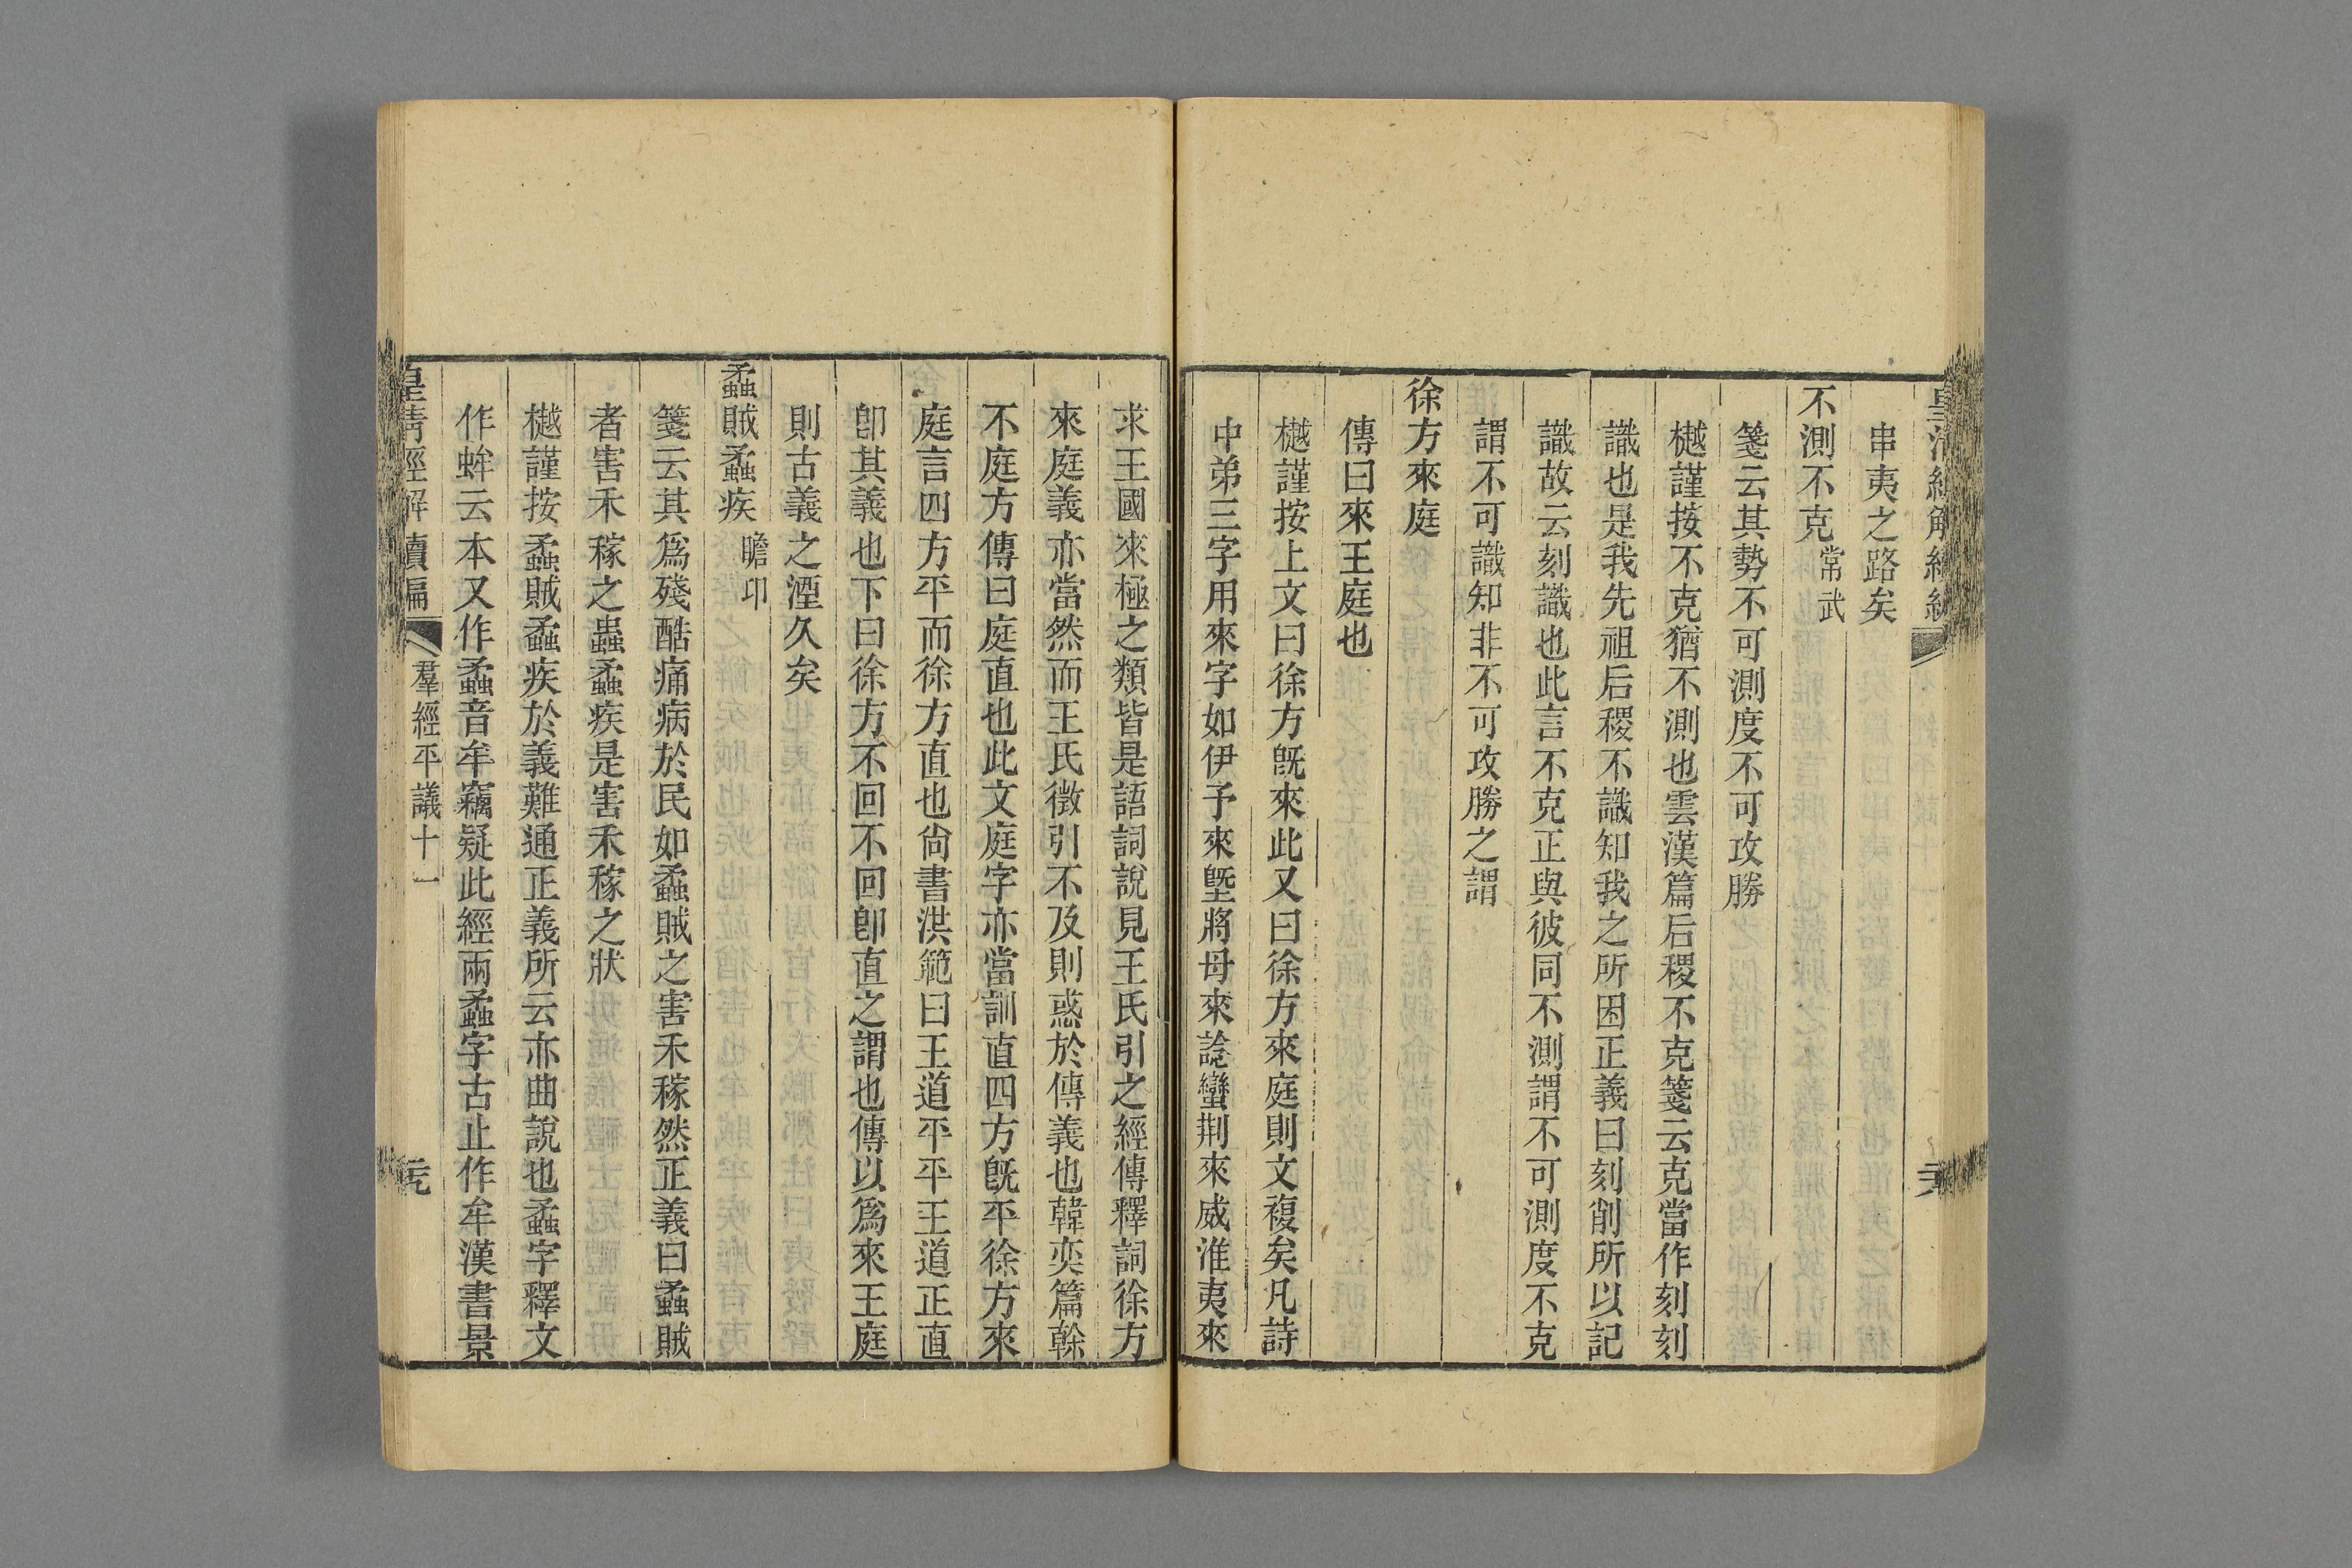 串夷之路矣
不測不克常武
箋云其勢不可測度不可攻勝
樾謹按不克猶不測也雲漢篇后稷不克箋云克當作刻刻
識也是我先祖后稷不識知我之所困正義曰刻削所以記
識故云刻識也此言不克正與彼同不測謂不可測度不克
謂不可識知非不可攻勝之謂
徐方來庭
傳曰來王庭也
樾謹按上文曰徐方旣來此又曰徐方來庭則文複矣凡詩
中弟三字用來字如伊予來墍將母來諗蠻荆來威淮夷來
求王國來極之類皆是語詞說見王氏引之經傳釋詞徐方
來庭義亦當然而王氏徵引不及則惑於傳義也韓奕篇榦
不庭方傳曰庭直也此文庭字亦當訓直四方旣平徐方來
庭言四方平而徐方直也尙書洪範曰王道平平王道正直
卽其義也下曰徐方不回不回卽直之謂也傳以爲來王庭
則古義之湮久矣
蟊賊蟊疾瞻卬
箋云其爲殘酷痛病於民如蟊賊之害禾稼然正義曰蟊賊
者害禾稼之蟲蟊疾是害禾稼之狀
樾謹按蟊賊蟊疾於義難通正義所云亦曲說也蟊字釋文
作蛑云本又作蟊音牟竊疑此經兩蟊字古止作牟漢書景
皇清經解續編
羣經平議十一